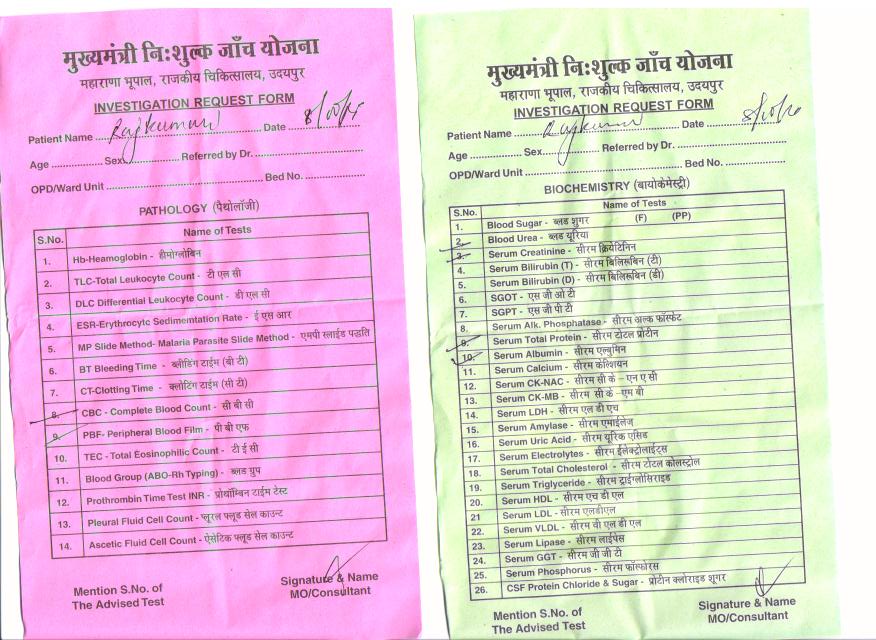 मुख्यमंत्री नि:शुल्क जाँच योजना
महाराणा भूपाल, राजकीय चिकित्सालय, उदयपुर
INVESTIGATION REQUEST FORM
Patient Name Rajkumar Date
Age Sex Referred by Dr.
OPD/Ward Unit Bed No.
PATHOLOGY (पैथोलॉजी)
S.No. Name of Tests
1. Hb-Heamoglobin - हीमोग्लोबिन
2. TLC-Total Leukocyte Count - टी एल सी
3. DLC Differential Leukocyte Count - डी एल सी
4. ESR-Erythrocytc Sedimemtation Rate - ई एस आर
5. MP Slide Method- Malaria Parasite Slide Method - एमपी स्लाईड पद्धति
6. BT Bleeding Time - ब्लीडिंग टाईम (बी टी)
7. CT-Clotting Time - क्लोटिंग टाईम (सी टी)
8. CBC - Complete Blood Count - सी बी सी
9. PBF- Peripheral Blood Film - पी बी एफ
10. TEC - Total Eosinophilic Count - टी ई सी
11. Blood Group (ABO-Rh Typing) - ब्लड ग्रुप
12. Prothrombin Time Test INR - प्रोथॉम्बिन टाईम टेस्ट
13. Pleural Fluid Cell Count - प्लूरल फ्लूड सेल काउन्ट
14. Ascetic Fluid Cell Count - ऐसेटिक फ्लूड सेल काउन्ट
Mention S.No. of
The Advised Test
Signature & Name
MO/Consultant
मुख्यमंत्री नि:शुल्क जाँच योजना
महाराणा भूपाल, राजकीय चिकित्सालय, उदयपुर
INVESTIGATION REQUEST FORM
Patient Name Rajkumar Date
Age Sex Referred by Dr.
OPD/Ward Unit Bed No.
BIOCHEMISTRY (बायोकेमेस्ट्री)
S.No. Name of Tests
1. Blood Sugar - ब्लड शुगर (F) (PP)
2. Blood Urea - ब्लड यूरिया
3. Serum Creatinine - सीरम क्रियेटिनिन
4. Serum Bilirubin (T) - सीरम बिलिरूबिन (टी)
5. Serum Bilirubin (D) - सीरम बिलिरूबिन (डी)
6. SGOT - एस जी ओ टी
7. SGPT - एस जी पी टी
8. Serum Alk. Phosphatase - सीरम अल्क फॉस्फेट
9. Serum Total Protein - सीरम टोटल प्रोटीन
10. Serum Albumin - सीरम एल्बुमिन
11. Serum Calcium - सीरम केल्शियन
12. Serum CK-NAC - सीरम सी के - एन ए सी
13. Serum CK-MB - सीरम सी के - एम बी
14. Serum LDH - सीरम एल डी एच
15. Serum Amylase - सीरम एमाईलेज
16. Serum Uric Acid - सीरम यूरिक एसिड
17. Serum Electrolytes - सीरम ईलेक्ट्रोलाईट्स
18. Serum Total Cholesterol - सीरम टोटल कोलस्ट्रोल
19. Serum Triglyceride - सीरम ट्राईग्लोसिराइड
20. Serum HDL - सीरम एच डी एल
21 Serum LDL - सीरम एलडीएल
22. Serum VLDL - सीरम वी एल डी एल
23. Serum Lipase - सीरम लाईपेस
24. Serum GGT - सीरम जी जी टी
25. Serum Phosphorus - सीरम फॉस्फोरस
26. CSF Protein Chloride & Sugar - प्रोटीन क्लोराइड शुगर
Mention S.No. of
The Advised Test
Signature & Name
MO/Consultant